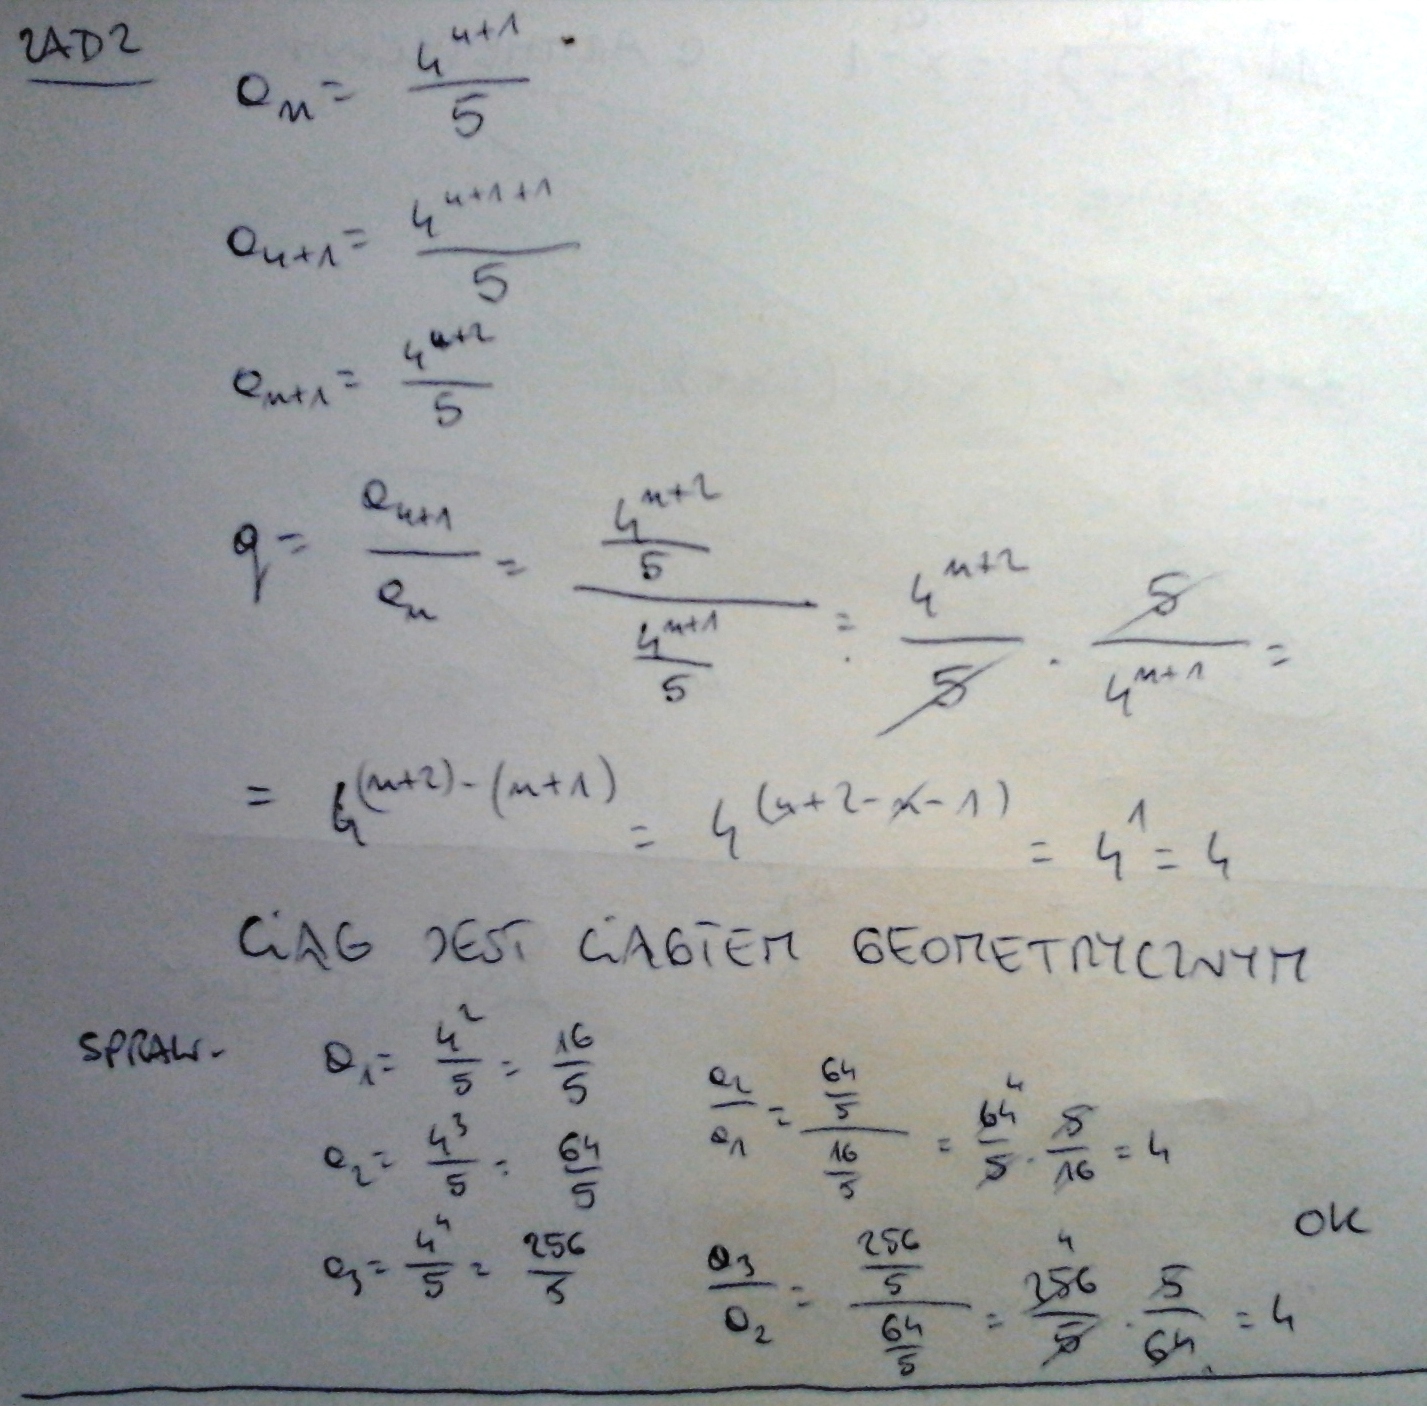 ZAD2
a_n = 4^{n+1}/5
a_{n+1} = 4^{n+1+1}/5
a_{n+1} = 4^{n+2}/5
q = a_{n+1}/a_n = (4^{n+2}/5)/(4^{n+1}/5) = 4^{n+2}/5 · 5/4^{n+1} =
= 4^{(n+2)-(n+1)} = 4^{(n+2-n-1)} = 4^1 = 4
CIĄG JEST CIĄGIEM GEOMETRYCZNYM
SPRAW. a_1 = 4^2/5 = 16/5
a_2 = 4^3/5 = 64/5
a_3 = 4^4/5 = 256/5
a_2/a_1 = (64/5)/(16/5) = 64/5 · 5/16 = 4
a_3/a_2 = (256/5)/(64/5) = 256/5 · 5/64 = 4
OK